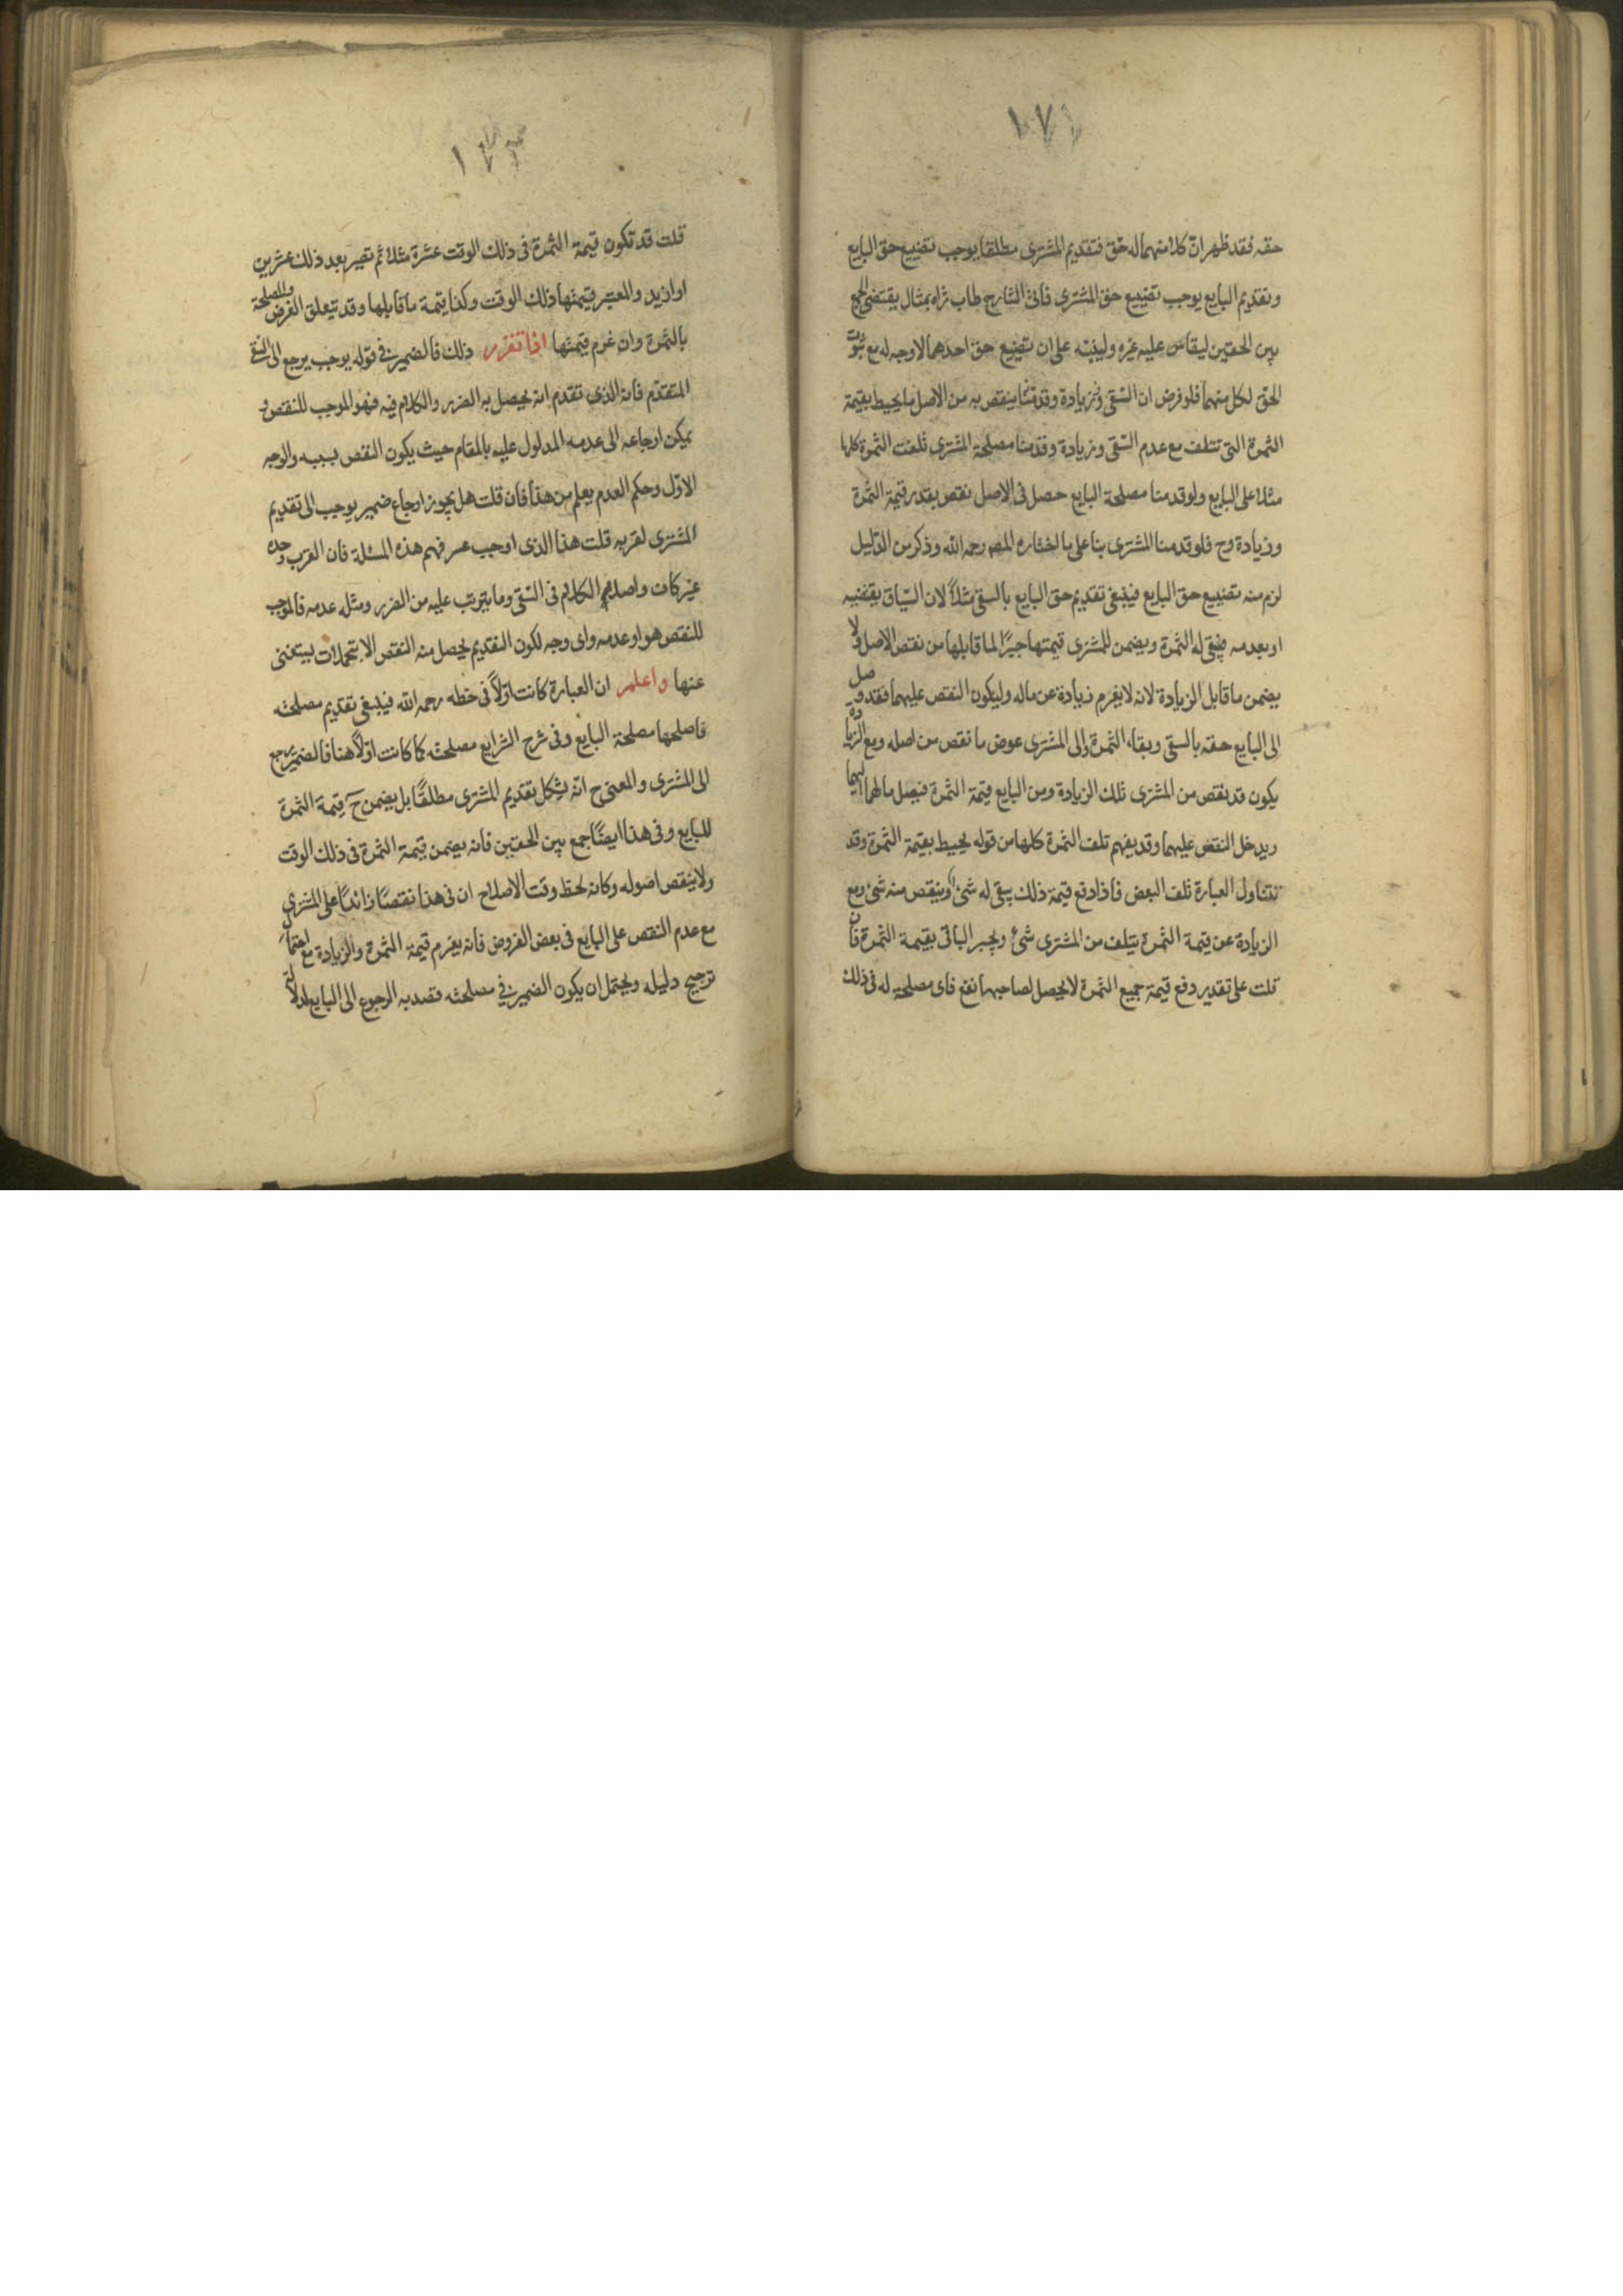 ١٧١
حقه فقد ظهر ان كلا منهما له حق فتقديم المشترى مطلقا يوجب تضييع حق البايع
وتقديم البايع يوجب تضييع حق المشترى فاتى الشارح طاب ثراه بمثال يقتضى الجمع
بين الحقين ليقاس عليه غيره ولينبه على ان تضييع حق احدهما لا وجه له مع ثبوت
الحق لكل منهما فلو فرض ان السقى وزيادة وقدمنا ينقص به من الاصل ما يحيط بقيمة
الثمرة التى تتلف مع عدم السقى وزيادة وقدمنا مصلحة المشترى تلفت الثمرة كلها
مثلا على البايع ولو قدمنا مصلحة البايع حصل فى الاصل نقص بقدر قيمة الثمرة
وزيادة وح فلو قدمنا المشترى بنا على ما اختاره المص رحمه الله وذكر من الدليل
لزم منه تضييع حق البايع فينبغى تقديم حق البايع بالسقى مثلاً لان السياق يقتضيه
او بعدمه فيبقى له الثمرة ويضمن للمشترى قيمتها جبرًا لما قابلها من نقص الاصل ولا
يضمن ما قابل الزيادة لانه لا يغرم زيادة عن ماله وليكون النقص عليهما فقد وصل
الى البايع حقه بالسقى وبقاء الثمرة والى المشترى عوض ما نقص من اصله ومع الزيادة
يكون قد نقص من المشترى تلك الزيادة ومن البايع قيمة الثمرة فيصل مالهما اليهما
ويدخل النقص عليهما وقد يفهم تلف الثمرة كلها من قوله يحيط بقيمة الثمرة وقد
تتناول العبارة تلف البعض فاذا دفع قيمة ذلك يبقى له شئ او ينقص منه شئ ومع
الزيادة عن قيمة الثمرة يتلف من المشترى شئ ويجبر الباقى بقيمة الثمرة فان
قلت على تقدير دفع قيمة جميع الثمرة لا يحصل لصاحبها نفع فاى مصلحة له فى ذلك
قلت قد تكون قيمة الثمرة فى ذلك الوقت عشرة مثلا ثم تصير بعد ذلك عشرين
او ازيد والمعتبر قيمتها ذلك الوقت وكذا قيمة ما قابلها وقد تتعلق الغرض والمصلحة
بالثمرة وان غرم قيمتها اذا تقرر ذلك فالضمير فى قوله يوجب يرجع الى السقى
المتقدم فانه الذى تقدم انه يحصل به الضرر والكلام فيه فهو الموجب للنقص و
يمكن ارجاعه الى عدمه المدلول عليه بالمقام حيث يكون النقص بسببه والوجه
الاول وحكم العدم يعلم من هذا فان قلت هل يجوز ارجاع ضمير يوجب الى تقديم
المشترى لقربه قلت هذا الذى اوجب عسر فهم هذه المسئلة فان القرب وحده
غير كاف واصل الكلام فى السقى وما يترتب عليه من الضرر ومثله عدمه فالموجب
للنقص هو او عدمه واى وجه لكون التقديم يحصل منه النقص الا بتمحلات يستغنى
عنها واعلم ان العبارة كانت اولاً فى خطه رحمه الله فينبغى تقديم مصلحته
فاصلحها مصلحة البايع وفى شرح الشرايع مصلحته كما كانت اولاً هنا فالضمير يرجع
الى المشترى والمعنى ح انه يشكل تقديم المشترى مطلقًا بل يضمن ح قيمة الثمرة
للبايع وفى هذا ايضًا جمع بين الحقين فانه يضمن قيمة الثمرة فى ذلك الوقت
ولا ينقص اصوله وكانه لحظ وقت الاصلاح ان فى هذا نقصًا زائدًا على المشترى
مع عدم النقص على البايع فى بعض الفروض فانه يغرم قيمة الثمرة والزيادة مع احتمال
ترجيح دليله ويحتمل ان يكون الضمير فى مصلحته قصد به الرجوع الى البايع لدلالة